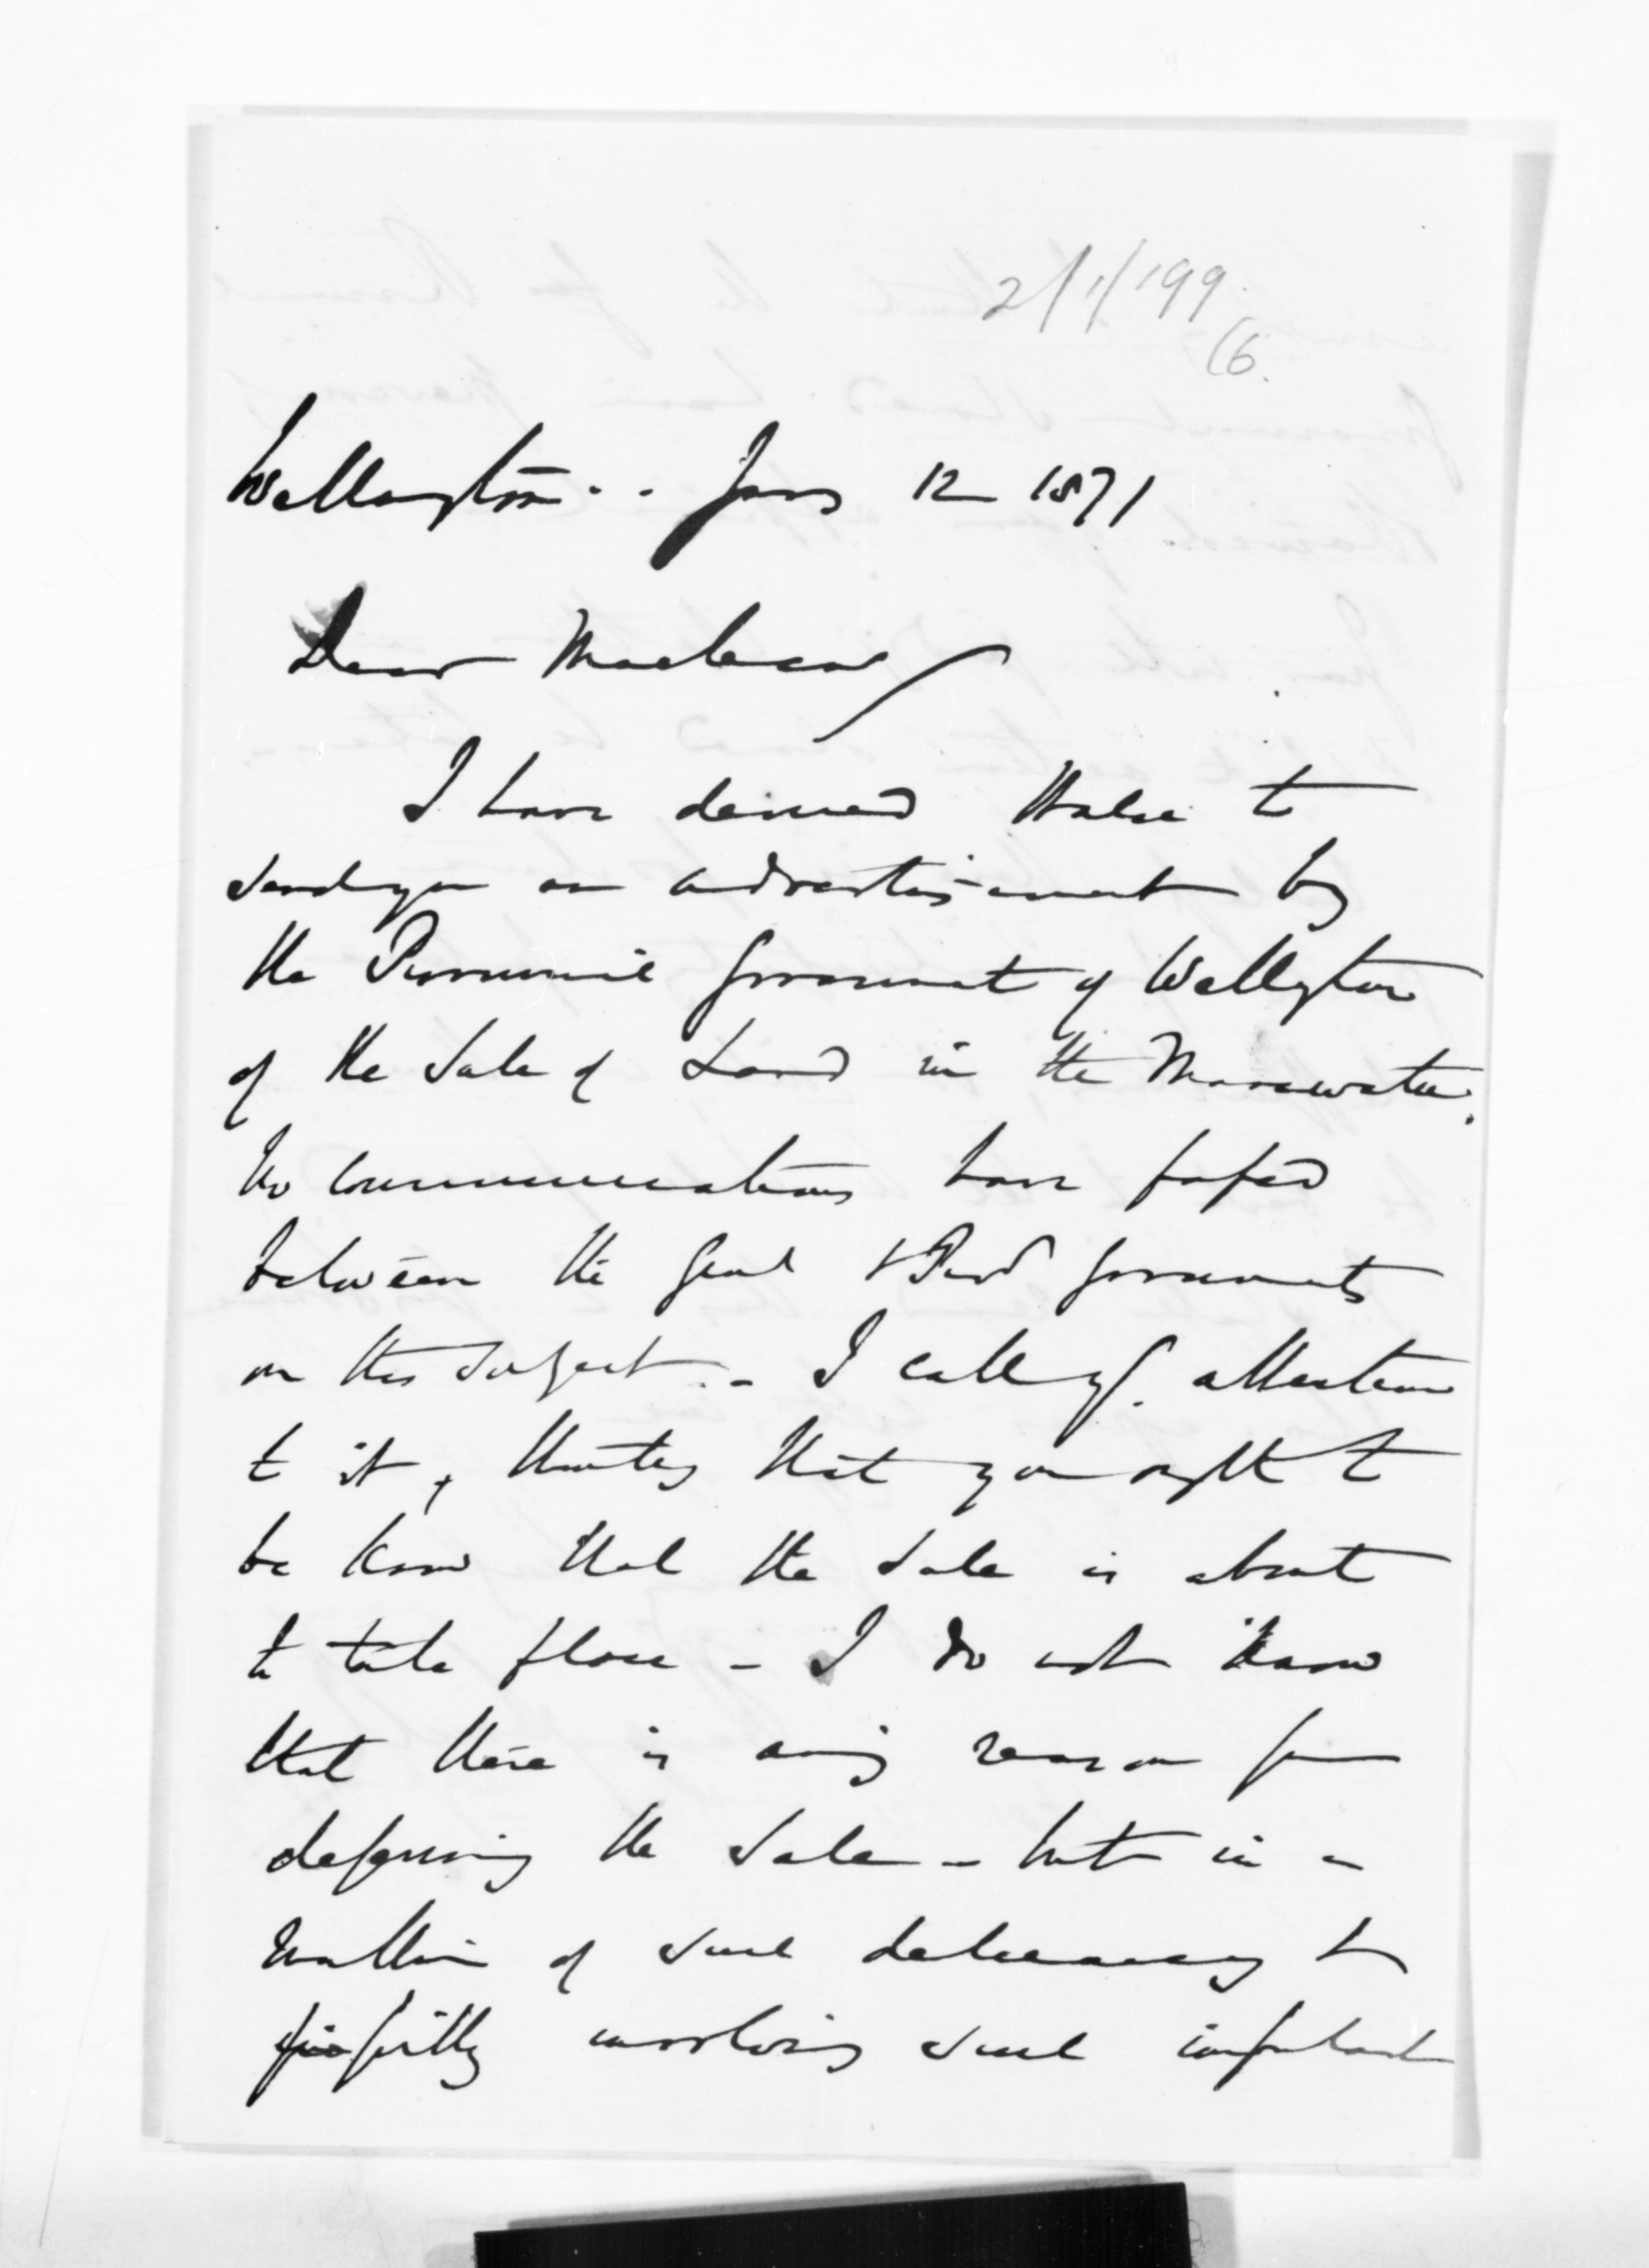 2/1/'99
(6.
Wellington.. Jany 12 1871
Dear Maclean
I have desired Halse to
send you an advertisement by
the Provincial Government of Wellington
of the Sale of Land in the Manawatu.
No communications have passed
between the Genl & Provl Governments
on this subject. - I call yr. attention
to it, thinking that you ought to
be know that the Sale is about
to take place - I do not know
that there is any reason for
deferring the Sale - but in a
matter of such delicacy &
involving such important